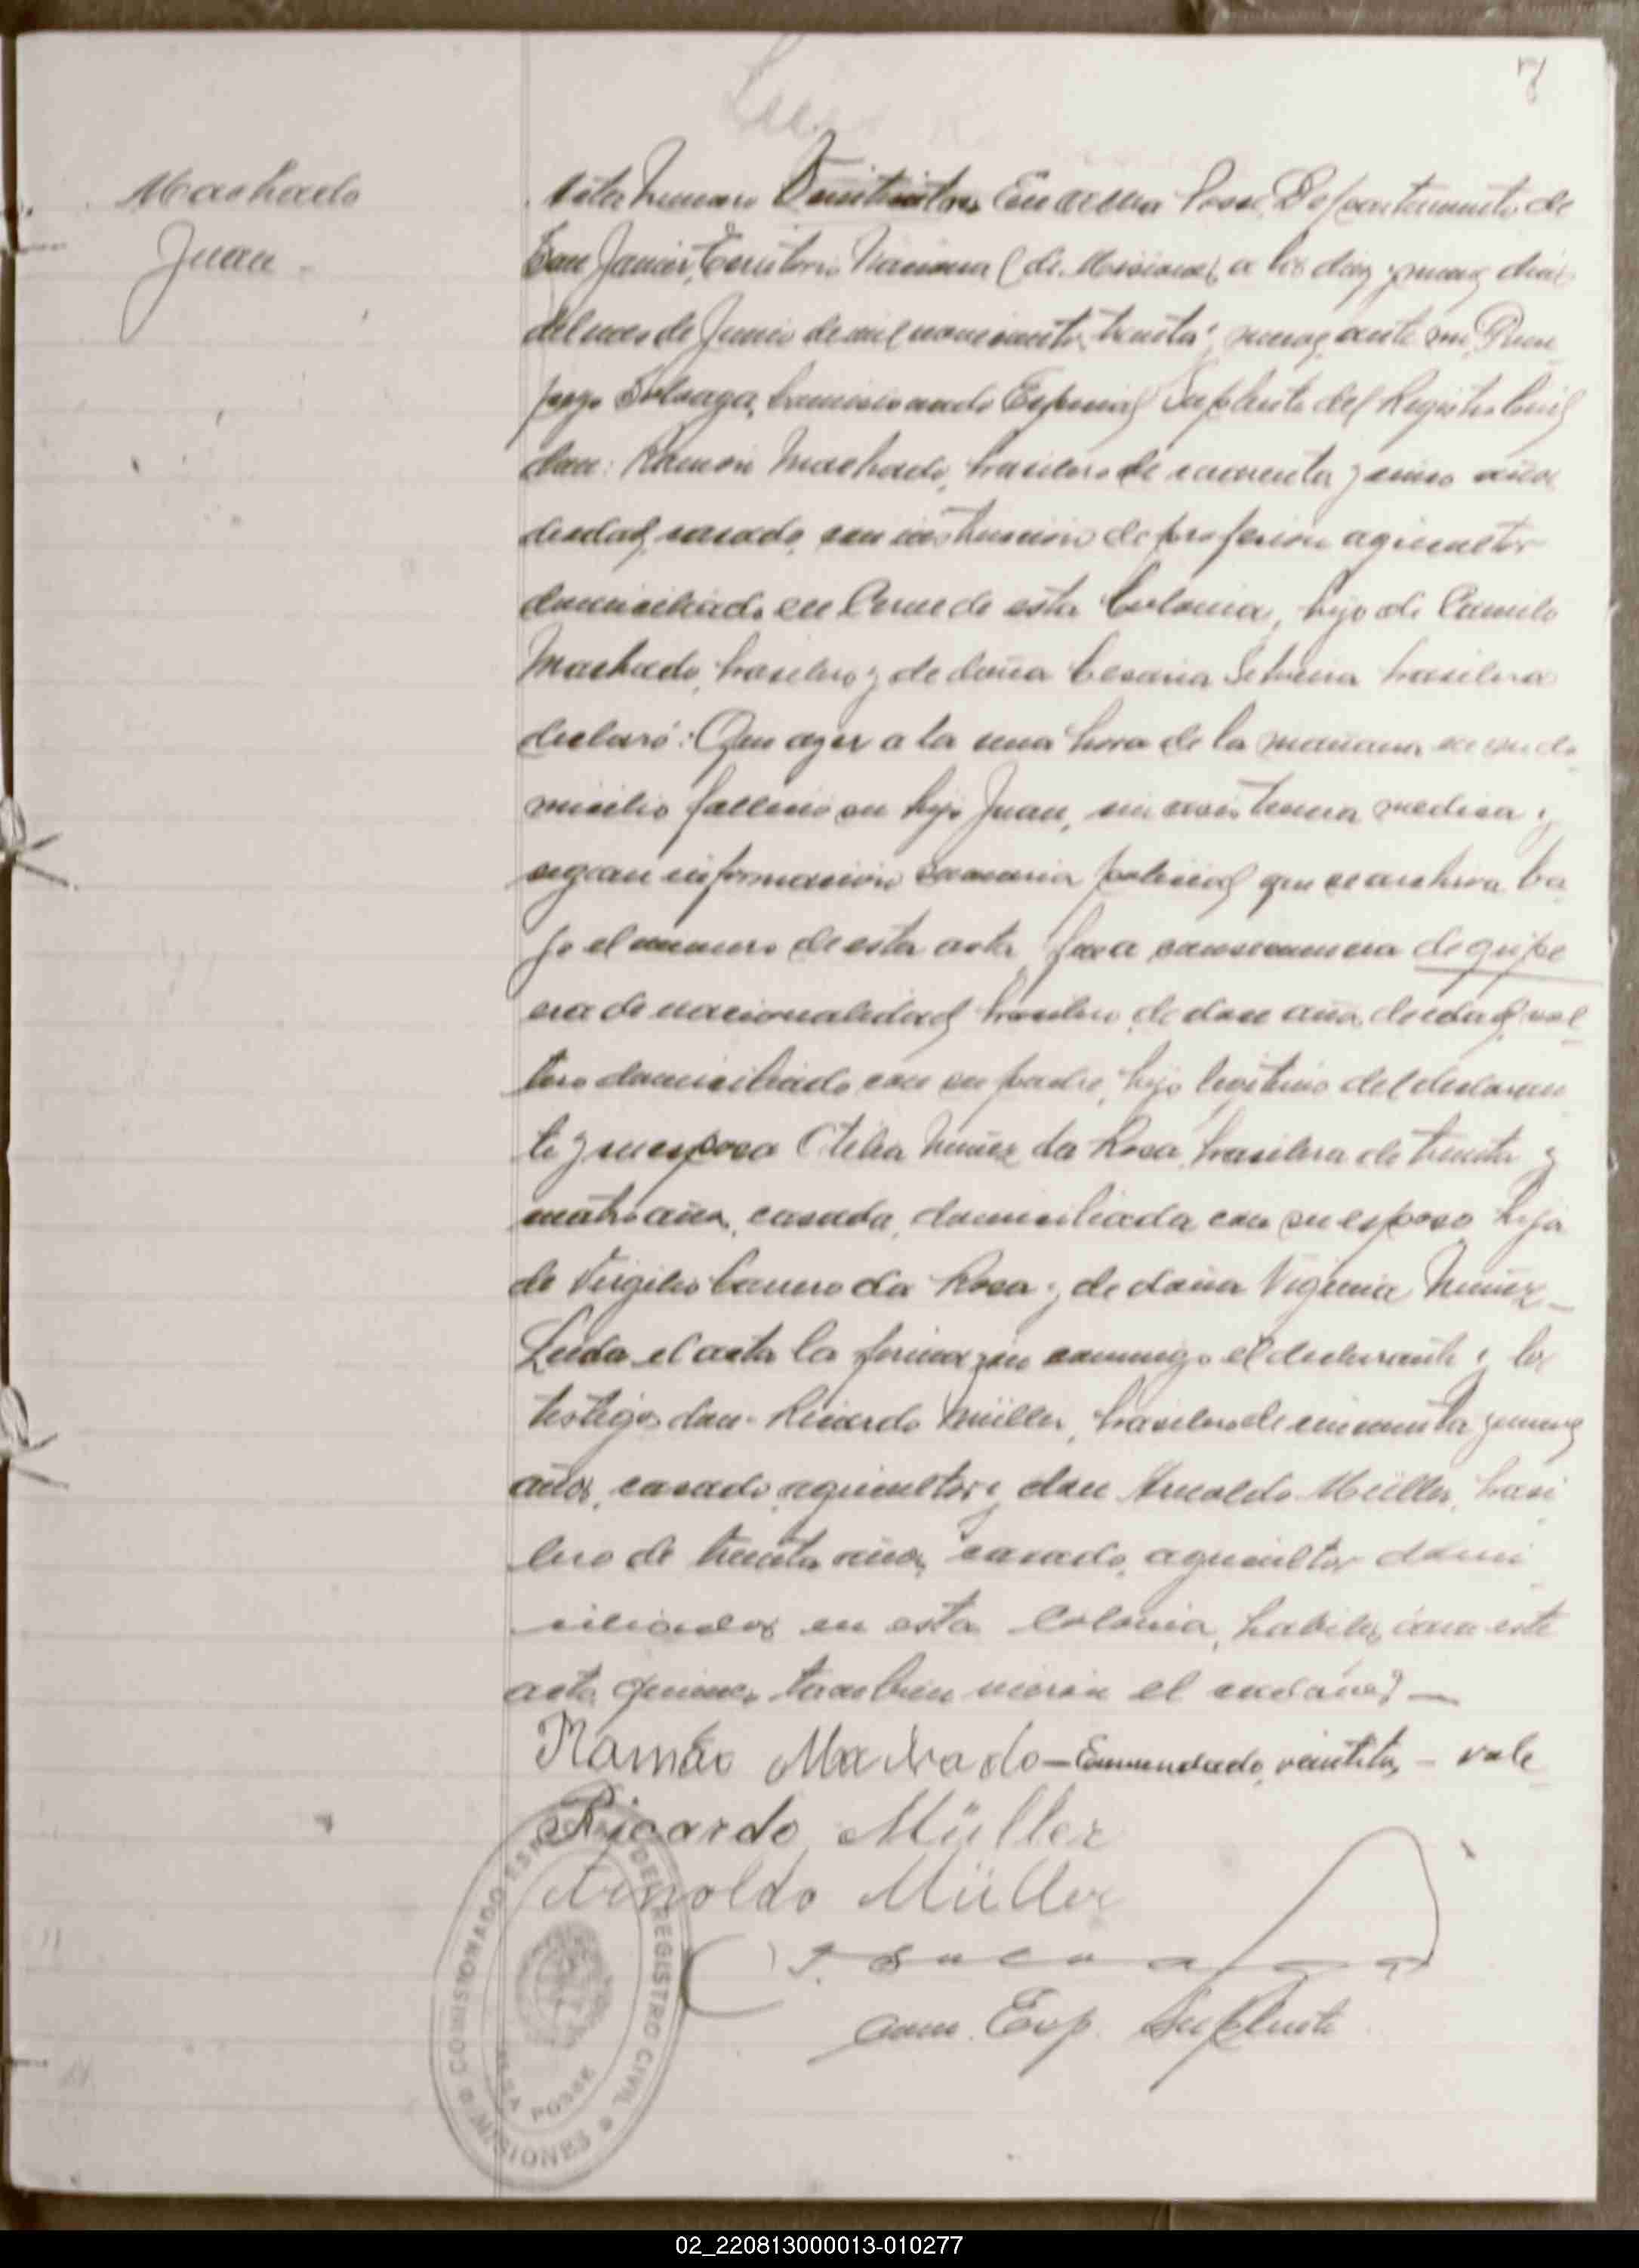 7
Machado
Juan
Acta número Veintitres En Alba Posse, Departamento de
San Javier, Territorio Nacional de Misiones, a los diez y nueve días
del mes de Junio de mil novecientos treinta y nueve, ante mi
Comisionado Especial Suplente del Registro Civil
don: Ramón Machado, brasilero de cuarenta y cinco años
de edad, casado, con instrucción de profesión agricultor
domiciliado en de esta Colonia, hijo de Camilo
Machado, brasilero y de doña Cesaria brasilera
declaró: Que ayer a la una hora de la mañana en su do
micilio falleció su hijo Juan, sin asistencia medica y
segun información sumaria policial que se archiva ba
jo el numero de esta acta, fue a consecuencia de gripe
era de nacionalidad brasilero, de doce años de edad, sol
tero domiciliado con su padre, hijo legitimo del declaran
te y su esposa Otilia Nuñez da Rosa, brasilera de treinta y
cuatro años, casada, domiciliada con su esposo, hija
de Virgilio da Rosa y de doña Vigencia Nuñez
Leída el acta la firmazon conmigo el declarante y los
testigos don Ricardo Müller, brasilero de cincuenta y nueve
años, casado, agricultor y don Arnoldo Müller, brasi
lero de treinta años, casado, agricultor domi
ciliados en esta Colonia, habiles para este
acto quienes tambien vieron el cadáver —
Ramón Machado — Enmendado, veintitres – vale
Ricardo Müller
Arnoldo Müller
Com. Esp. Suplente
COMISIONADO ESPECIAL DEL REGISTRO CIVIL
ALBA POSSE
MISIONES
02_220813000013-010277